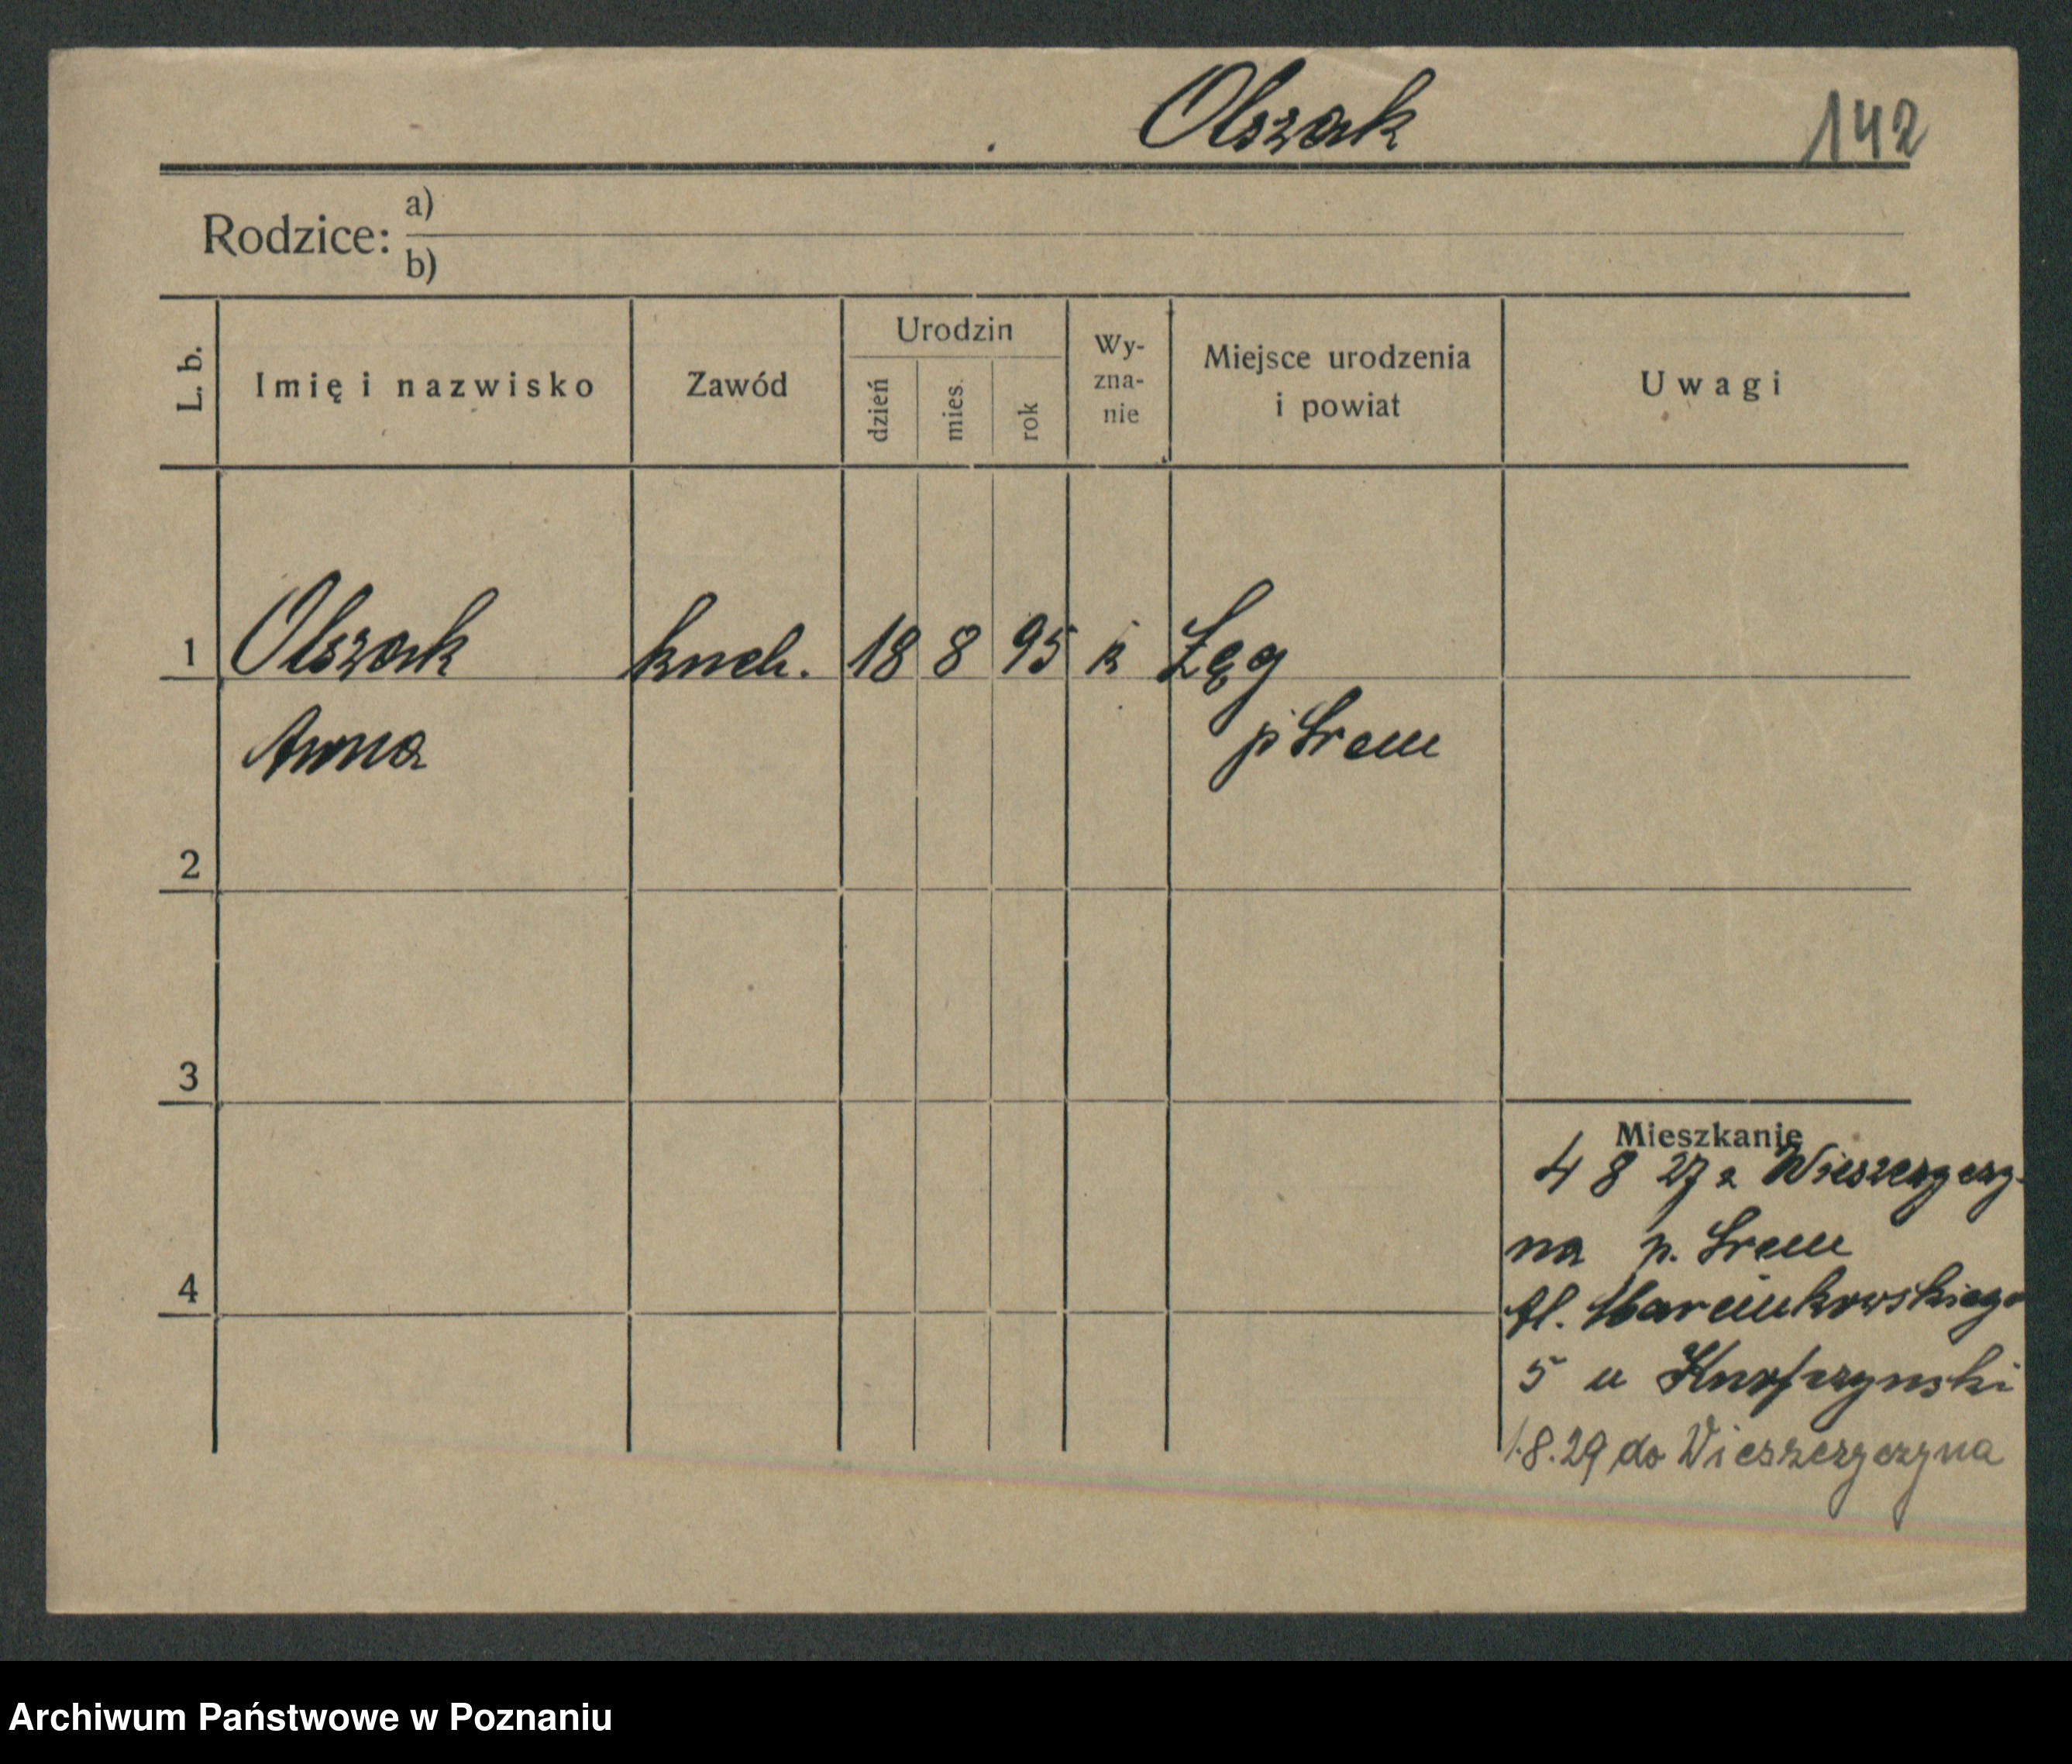 Olszak 142
Rodzice: a)
b)
L. b. Imię i nazwisko Zawód Urodzin dzień mies. rok Wy-zna-nie Miejsce urodzenia i powiat Uwagi
1 Olszak kuch. 18 8 95 k Łęg
Anna p Śrem
2
3
Mieszkanie
4 8 27 z Wieszczyczy-
na p. Śrem
4 Al. Marcinkowskiego
5 u
1.8.29 do Wieszczyczyna
Archiwum Państwowe w Poznaniu